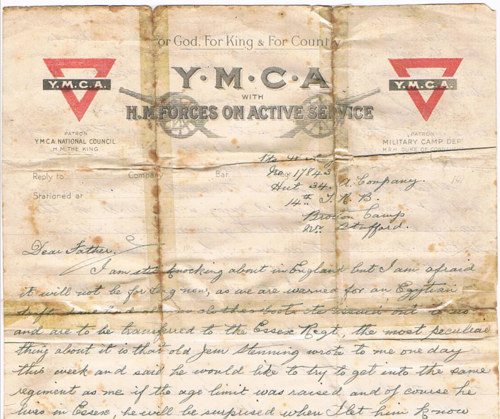 For God, For King & For Country
Y·M·C·A
WITH
H.M. FORCES ON ACTIVE SERVICE
Y.M.C.A.
Y.M.C.A.
PATRON
Y.M.C.A. NATIONAL COUNCIL
H.M. THE KING.
PATRON
MILITARY CAMP DEPT
H.R.H. DUKE OF
Reply to
Company
Bat.
Stationed at
No 17843
Hut 34. A Company.
14th T. R. B.
Brocton Camp
Nr. Stafford.
Dear Father,
I am still knocking about in England but I am afraid
it will not be for long now, as we are warned for an Egyptian
draft, issued out to us
and are to be transferred to the Essex Regt, the most peculiar
thing about it is that old Jem Stenning wrote to me one day
this week and said he would like to try to get into the same
regiment as me if the age limit was raised and of course he
lives in Essex, he will be surprised when I let him know